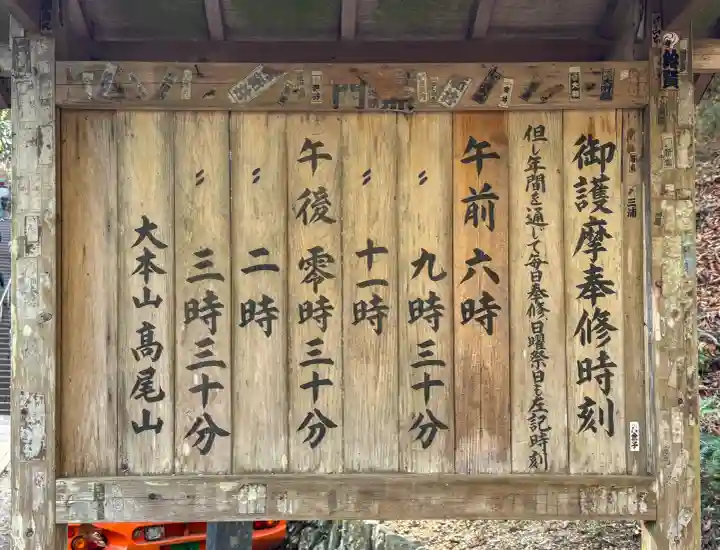 御護摩奉修時刻
但し年間を通じて毎日奉修日曜祭日も左記時刻
午前六時
〃 九時三十分
〃 十一時
午後零時三十分
〃 二時
〃 三時三十分
大本山高尾山